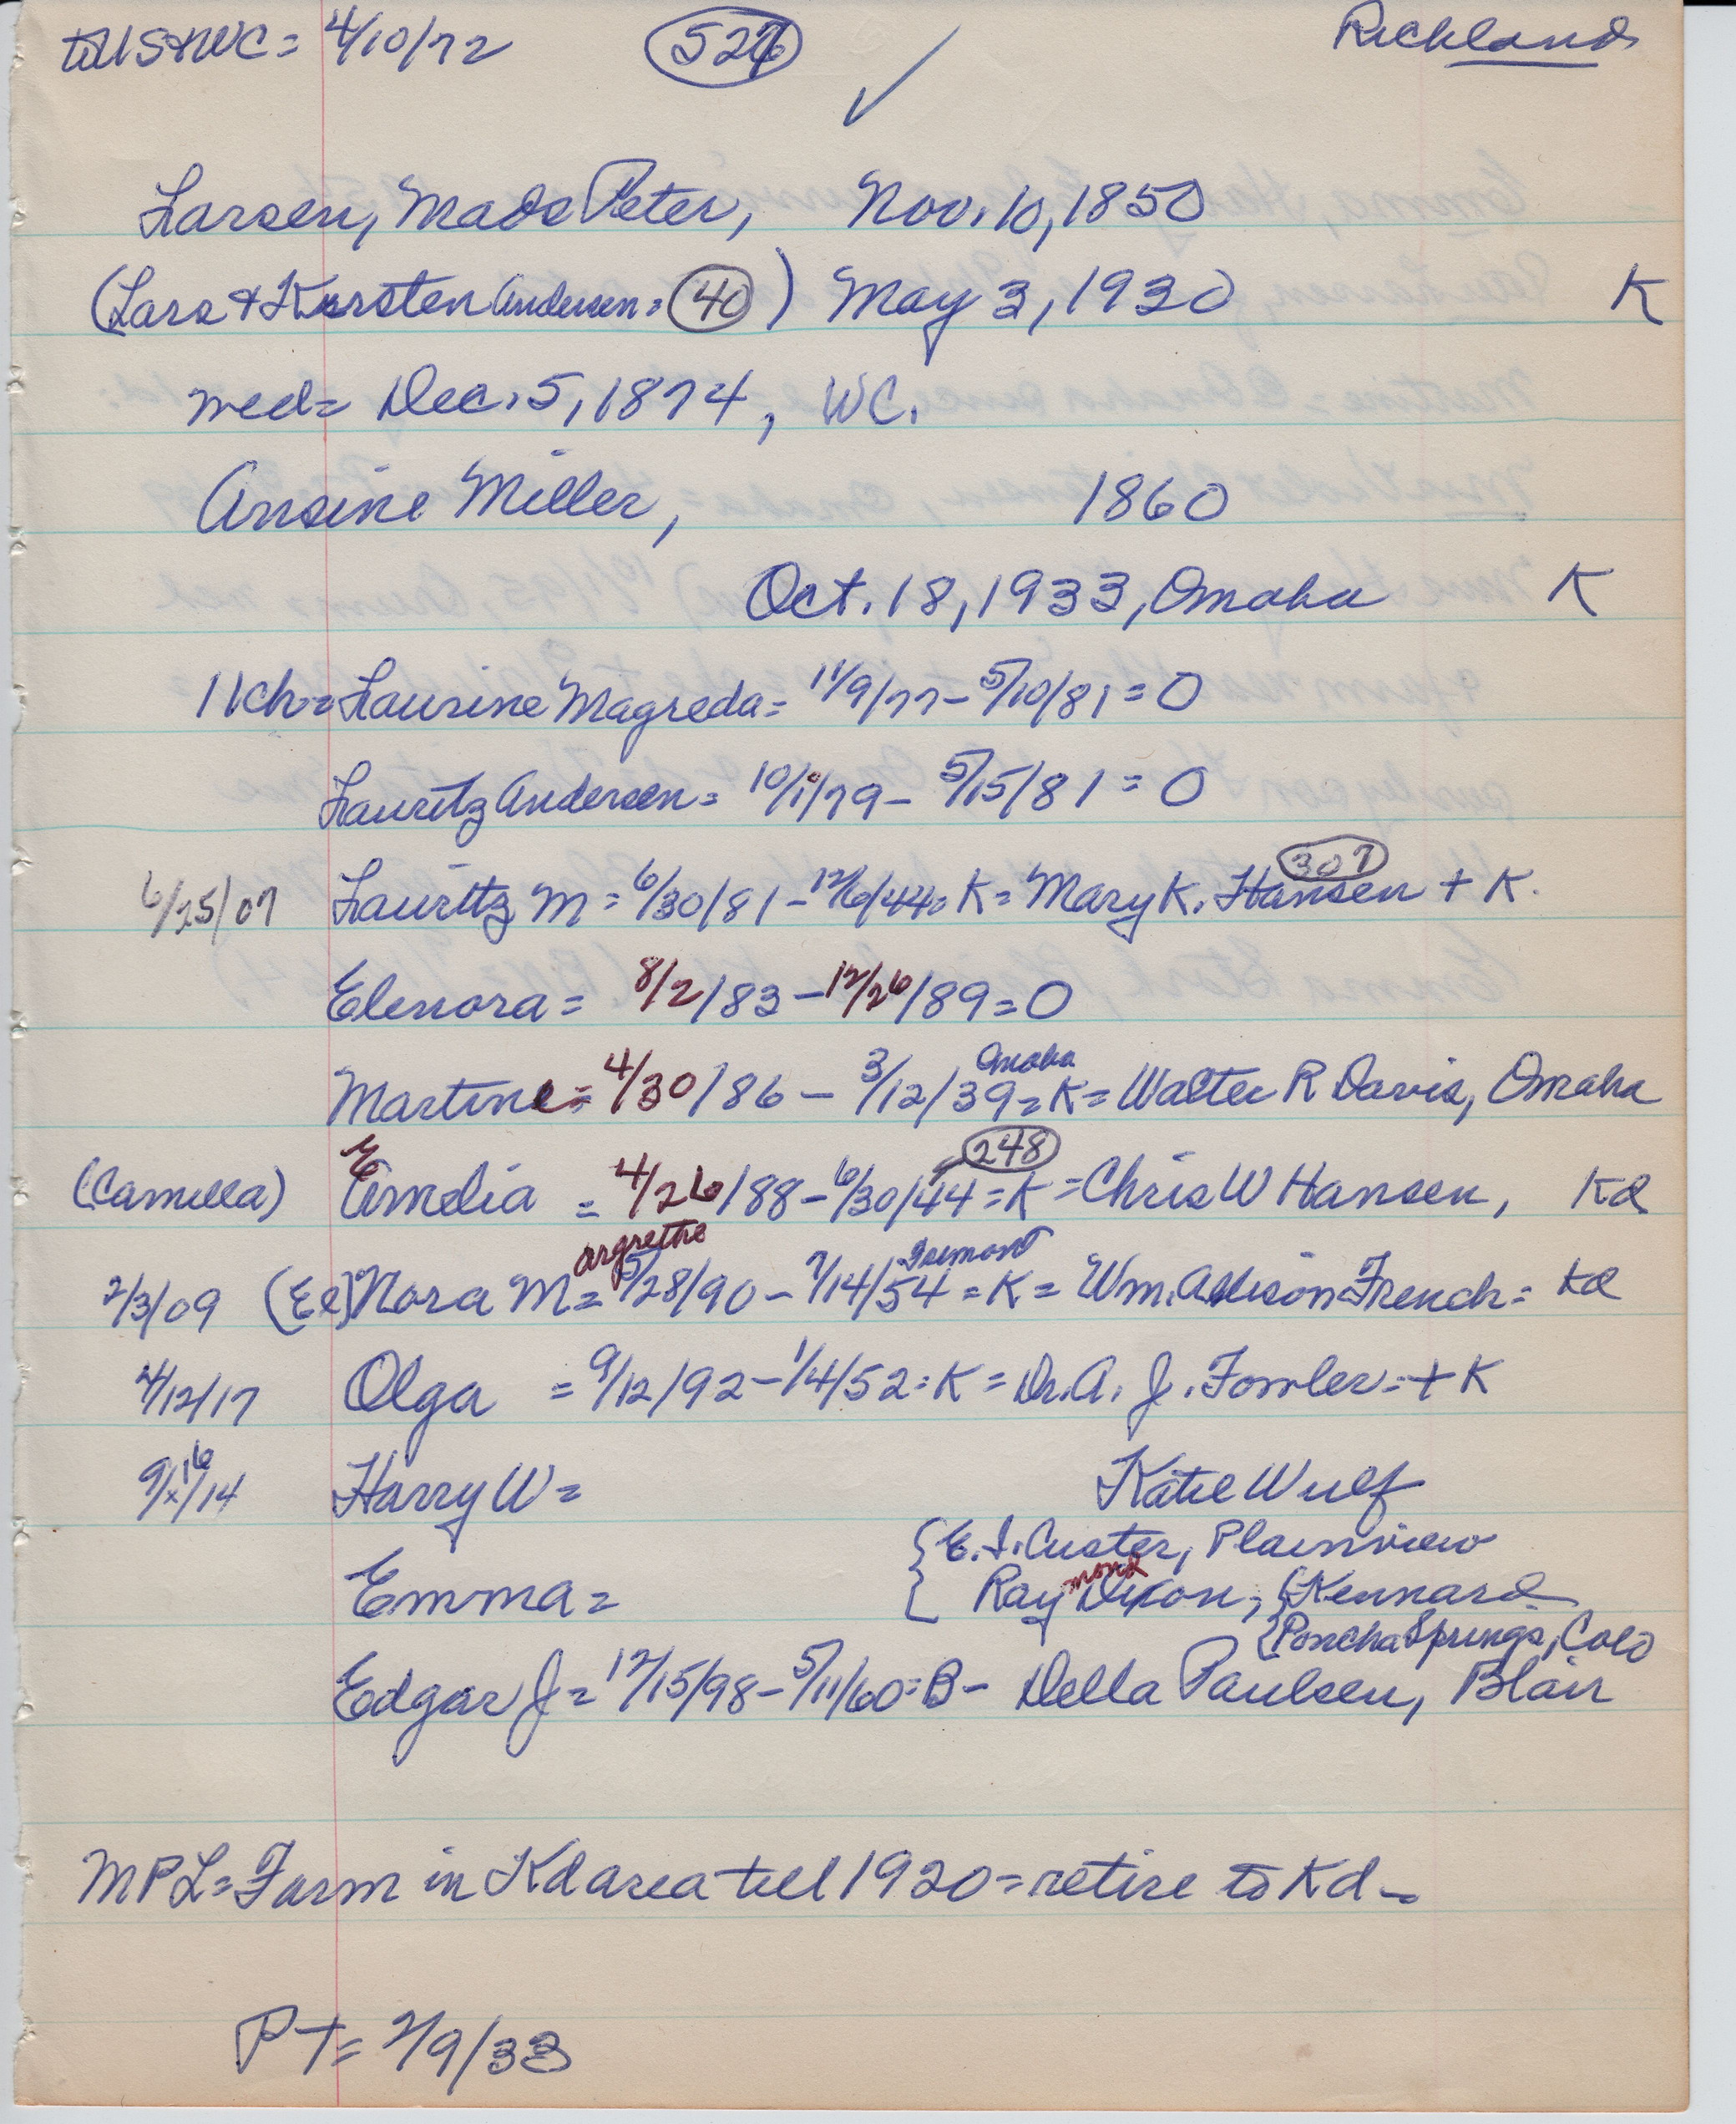 to US & WC = 4/10/72 527 ✓ Richland
Larsen, Mads Peter, Nov. 10, 1850
(Lars & Karsten Andersen = 40) May 3, 1930 K
wed = Dec. 5, 1874, WC.
Ansine Miller, 1860
Oct. 18, 1933, Omaha K
11ch = Laurine Magreda = 11/9/77 - 5/10/81 = 0
Lauritz Andersen = 10/1/79 - 5/15/81 = 0
307
6/25/07 Lauritz M = 6/30/81 - 12/6/44 = K = Mary K. Hansen + K.
Elenora = 8/2/83 - 12/26/89 = 0
Omaha
Martine = 4/30/86 - 3/12/39 = K = Walter R Davis, Omaha
E 248
(Camilla) Emelia = 4/26/88 - 6/30/44 = K = Chris W Hansen, Kd
argrethe Fremont
2/3/09 (El)Nora M = 5/28/90 - 7/14/54 = K = Wm. Addison French = Kd
4/12/17 Olga = 9/12/92 - 1/4/52 = K = Dr. A. J. Fowler = + K
9/16/14 Harry W = Katie Wulf
{ E. I. Custer, Plainview
mond
Emma = Ray Dixon, { Kennard
{ Poncha Springs, Colo
Edgar J = 12/15/98 - 5/11/60 = B - Della Paulsen, Blair
MPL = Farm in Kd area till 1920 = retire to Kd -
PT = 2/9/33